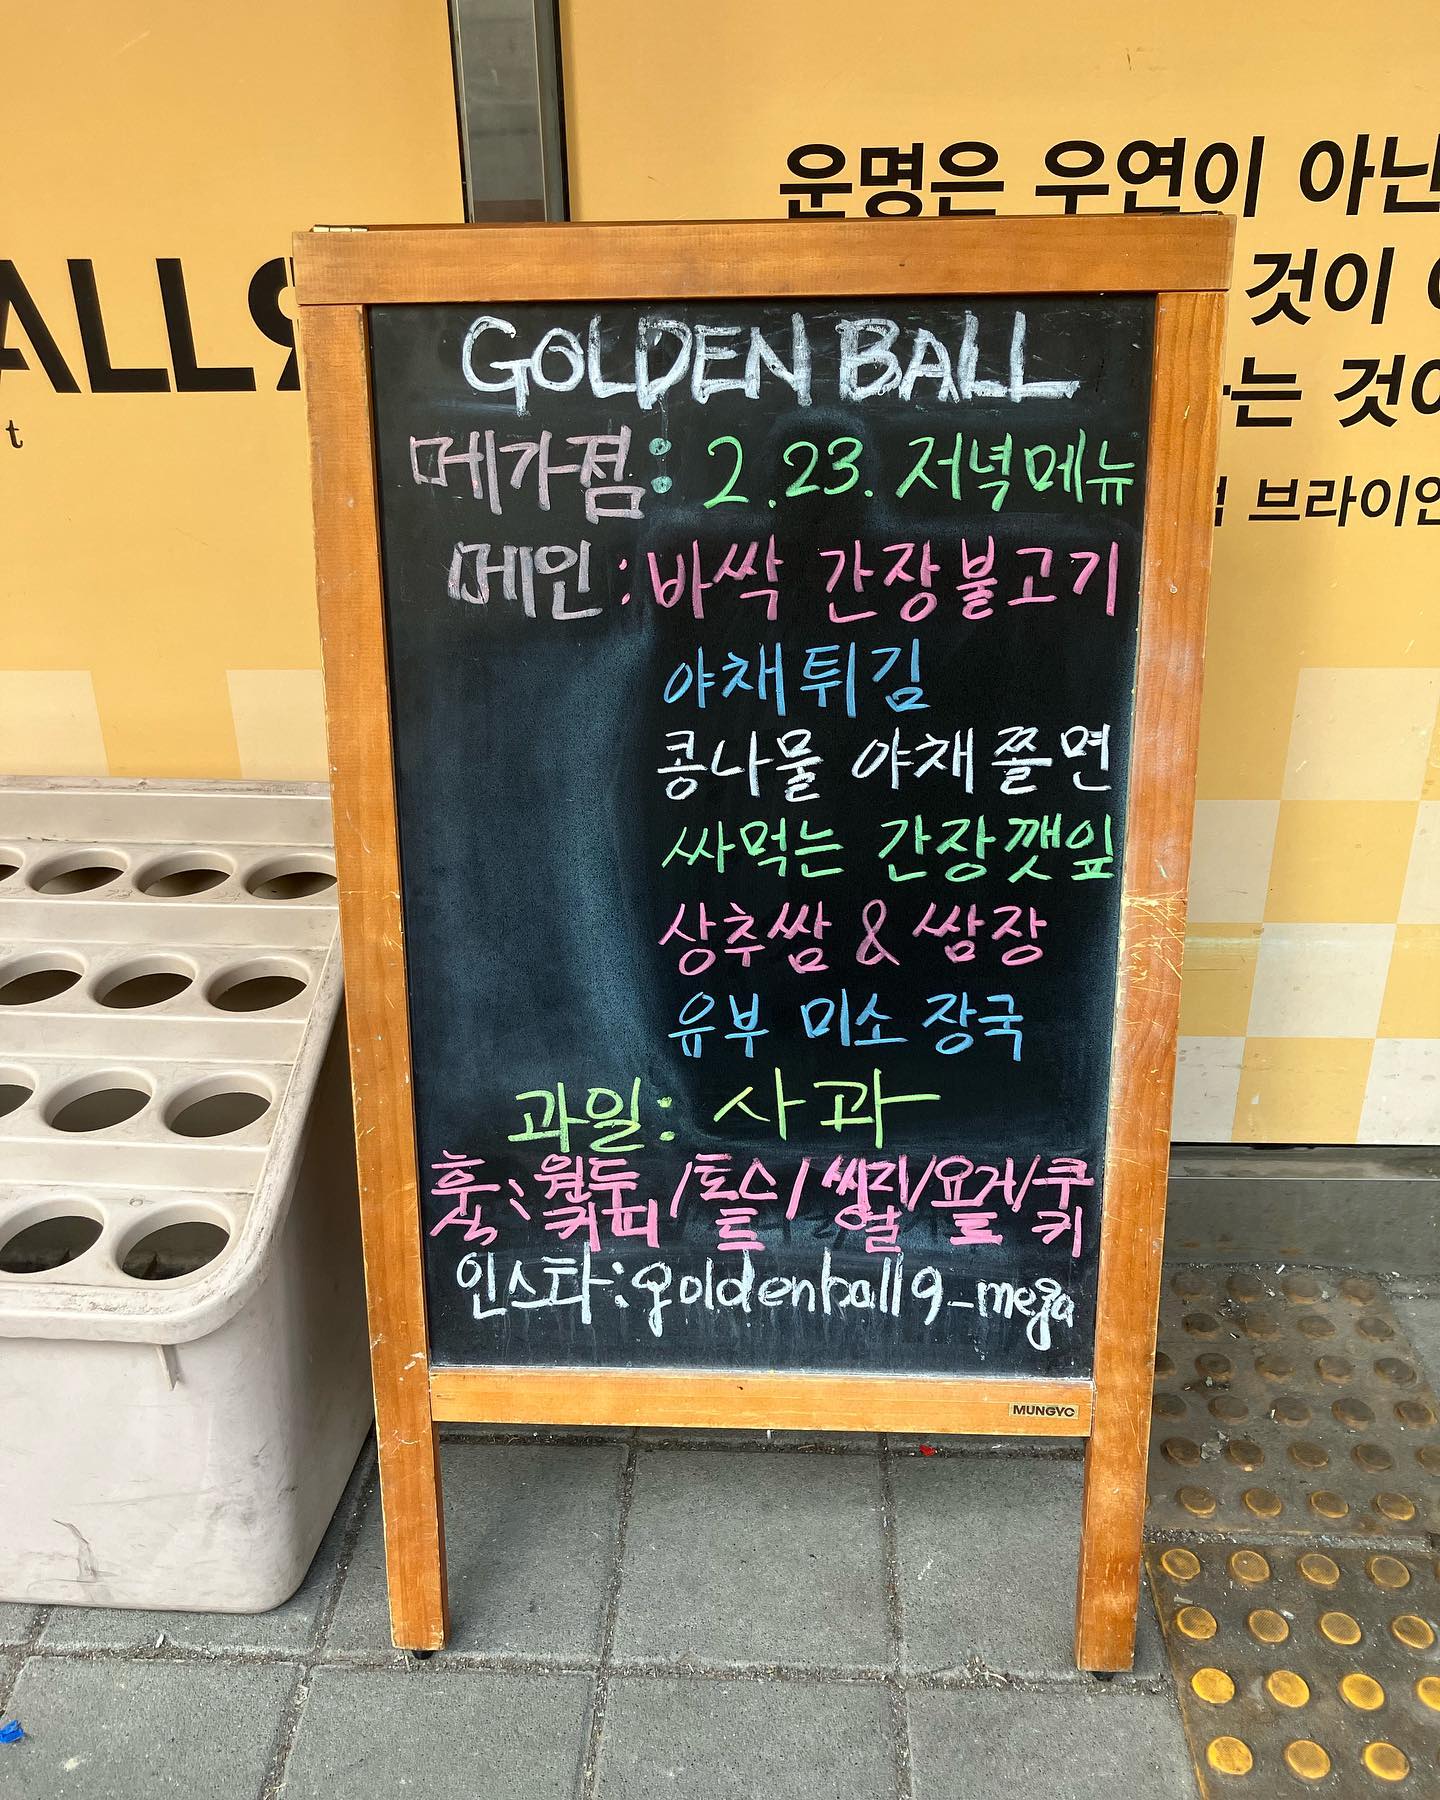 운명은 우연이 아닌
것이
는 것이
브라이언
ALL
t
GOLDEN BALL
메가점: 2.23. 저녁메뉴
메인: 바싹 간장불고기
야채튀김
콩나물 야채쫄면
싸먹는 간장깻잎
상추쌈 & 쌈장
유부 미소 장국
과일: 사과
후식: 원두커피/토스트/씨리얼/요거트/쿠키
인스타: goldenball9_mega
MUNGYO